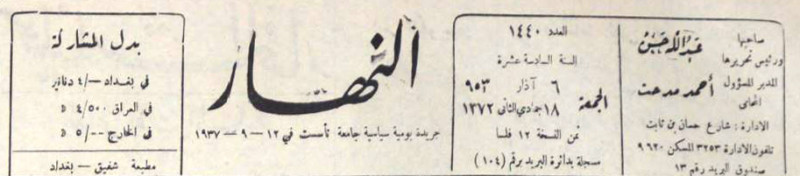 صاحبها
ورئيس تحريرها
عبدالله حسن
المدير المسؤول
المحامي
أحمد مدحت
الادارة : شارع حسان بن ثابت
تلفون الادارة ٣٢٥٣ المسكن ٩٦٢٠
صندوق البريد رقم ١٣
العدد ١٤٤٠
السنة السادسة عشرة
الجمعة
٦ آذار ٩٥٣
١٨ جمادي الثاني ١٣٧٢
ثمن النسخة ١٢ فلسا
مسجلة بدائرة البريد برقم (١٠٤)
النهار
جريدة يومية سياسية جامعة تأسست في ١٢ – ٩ – ١٩٣٧
بدل المشاركة
في بغداد ٤/٠٠ دنانير
في العراق ٤/٥٠٠ د
في الخارج ٥/٠٠ د
مطبعة شفيق – بغداد